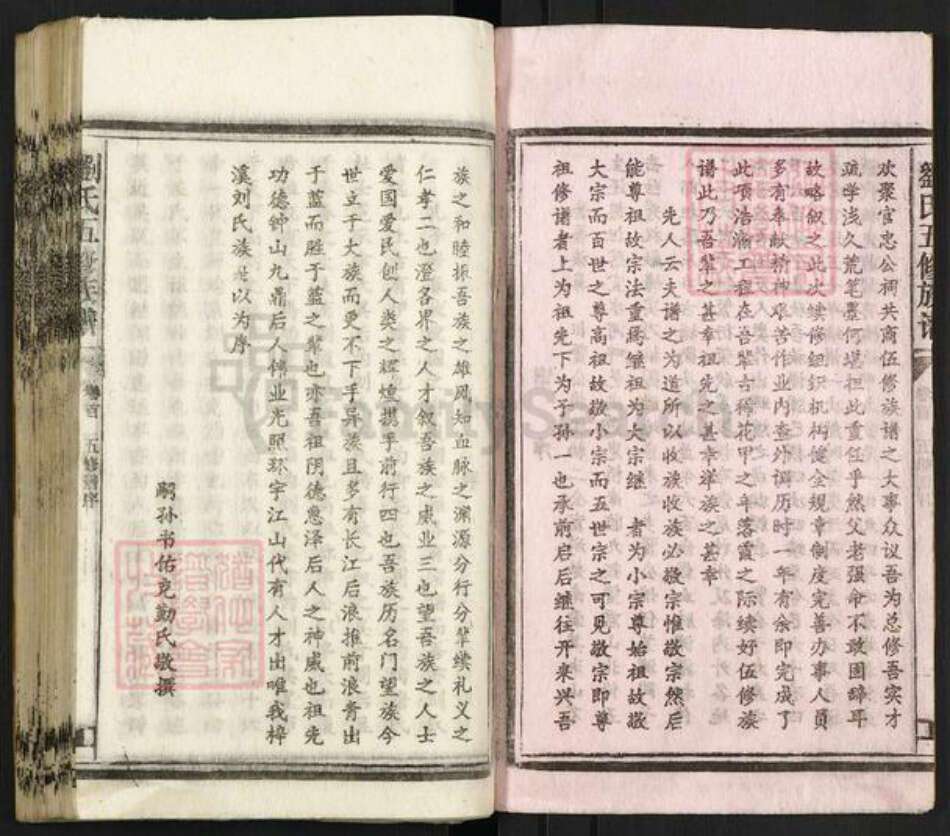 劉氏五修族譜
欢聚官忠公祠共商伍修族谱之大事众议吾为总修吾实才
疏学浅久荒笔墨何堪担此重任乎然父老强命不敢固辞耳
故略叙之此次续修组织机构健全规章制度完善办事人员
多有奉献精神艰苦作业内查外调历时一年有余即完成了
此项浩瀚工程在吾辈古稀花甲之年落霞之际续好伍修族
谱此乃吾辈之甚幸祖先之甚幸举族之甚幸
先人云夫谱之为道所以收族收族必敬宗惟敬宗然后
能尊祖故宗法重焉继祖为大宗继 者为小宗尊始祖故敬
大宗而百世之尊高祖故敬小宗而五世宗之可见敬宗即尊
祖修谱者上为祖先下为子孙一也承前启后继往开来兴吾
族之和睦振吾族之雄风知血脉之渊源分行分辈续礼义之
仁孝二也澄各界之人才叙吾族之威业三也望吾族之人士
爱国爱民创人类之辉煌携手前行四也吾族历名门望族今
世立于大族而更不下手异族且多有长江后浪推前浪青出
于蓝而胜于蓝之辈也亦吾祖阴德惠泽后人之神威也祖先
功德钟山九鼎后人伟业光照环宇江山代有人才出唯我梓
溪刘氏族是以为序
嗣孙书佑克勤氏敬撰
劉氏五修族譜
卷首
五修谱序
FamilySearch